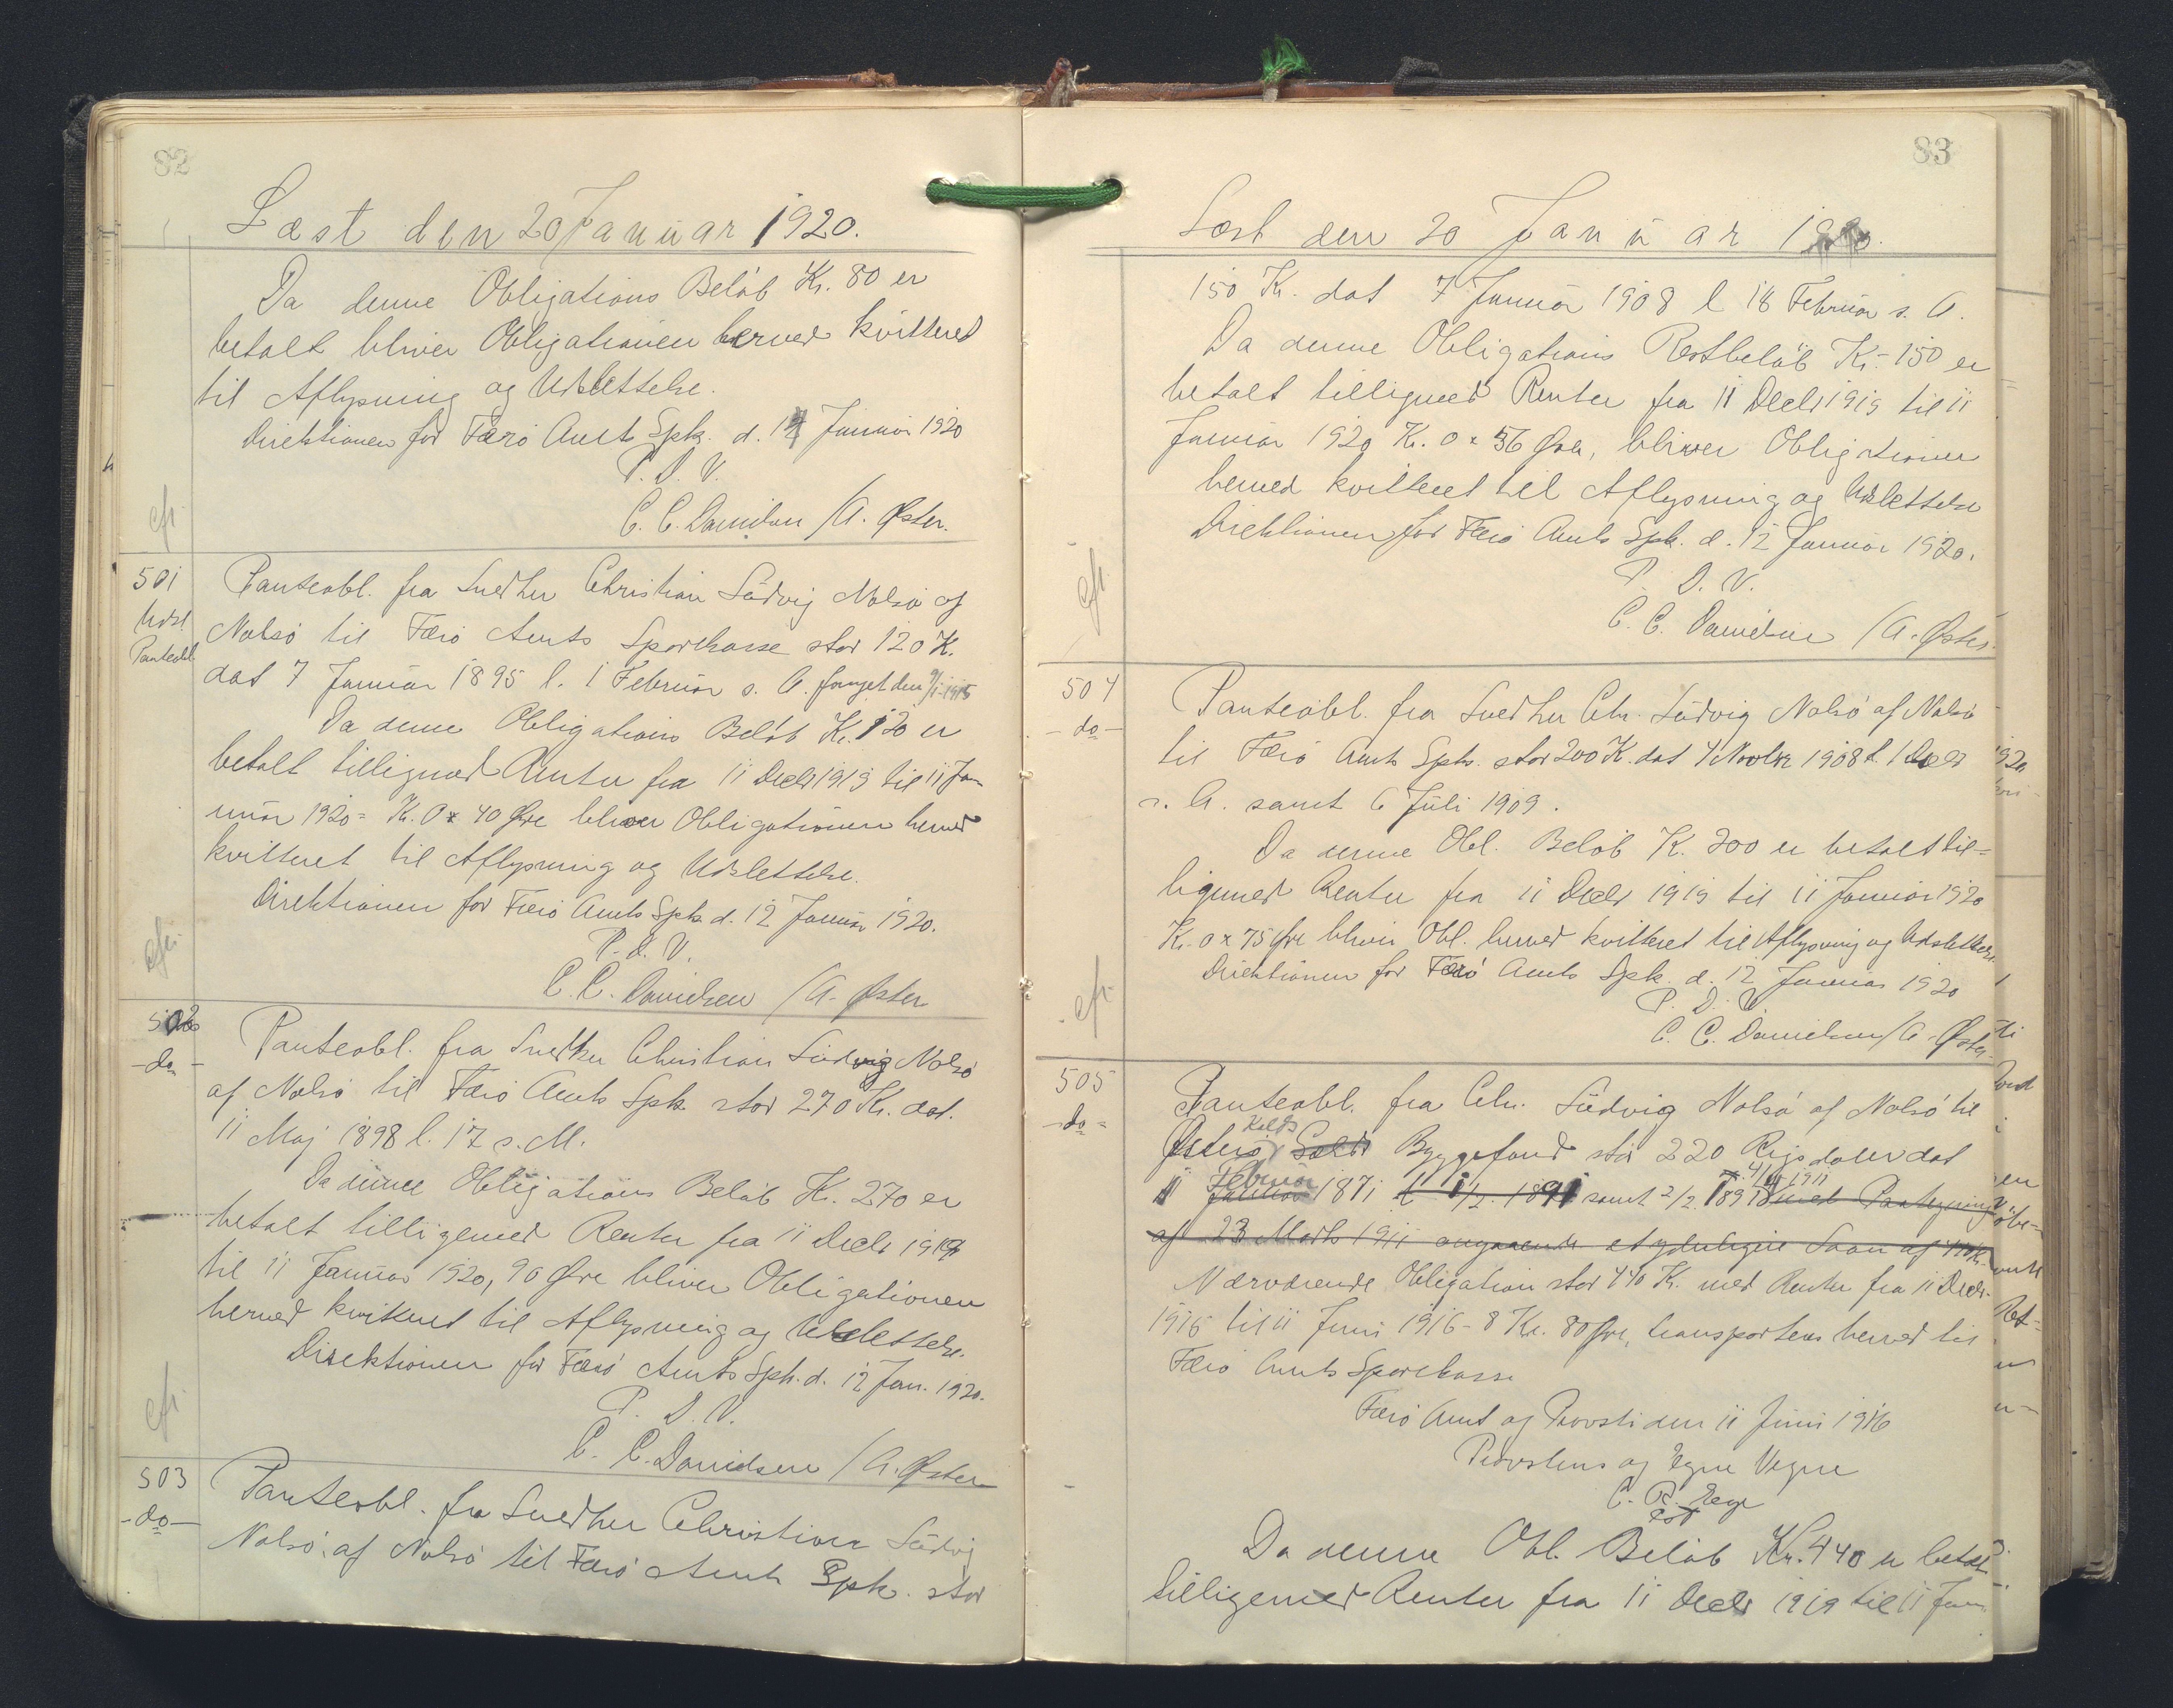 82
Læst den 20 Januar 1920.
Da denne Obligations Beløb Kr. 80 er
betalt bliver Obligationen herved kvitteret
til Aflysning og Udslettelse.
Direktionen for Færö Amts Spk. d. 12 Januar 1920
P. D. V.
C. C. Danielsen /A. Øster.
cfr.
501
Udsl.
Panteobl
Panteobl. fra Snedker Christian Ludvig Nolsö af
Nolsö til Færö Amts Sparekasse stor 120 K.
dat 7 Januar 1895 l. 1 Februar s. A. fornyet den 9/1-1915
Da denne Obligations Beløb Kr. 120 er
betalt tilligemed Renter fra 11 Decbr 1919 til 11 Jan
uar 1920 = Kr. 0 x 40 Øre bliver Obligationen herved
kvitteret til Aflysning og Udslettelse.
Direktionen for Færö Amts Spk. d. 12 Januar 1920.
P. D. V.
C. C. Danielsen /A. Øster
cfr.
502
-do-
Panteobl. fra Snedker Christian Ludvig Nolsö
af Nolsö til Færö Amts Spk. stor 270 Kr. dat.
11 Maj 1898 l. 17 s. M.
Da denne Obligations Beløb Kr. 270 er
betalt tilligemed Renter fra 11 Decbr 1919
til 11 Januar 1920, 90 Øre bliver Obligationen
herved kvitteret til Aflysning og Udslettelse.
Direktionen for Færö Amts Spk. d. 12 Jan. 1920.
P. D. V.
C. C. Danielsen /A. Øster
cfr
503
-do-
Panteobl. fra Snedker Christian Ludvig
Nolsö af Nolsö til Færö Amts Spk. stor
83
Læst den 20 Januar 1920.
150 Kr. dat 7 Januar 1908 l 18 Februar s. A.
Da denne Obligations Restbeløb Kr. 150 er
betalt tilligmed Renter fra 11 Decbr 1919 til 11
Januar 1920 Kr. 0 x 56 Øre, bliver Obligationen
herved kvitteret til Aflysning og Udslettelse
Direktionen for Færö Amts Spk. d. 12 Januar 1920.
P. D. V.
C. C. Danielsen /A. Øster.
cfr.
504
-do-
Panteobl. fra Snedker Chr. Ludvig Nolsö af Nolsö
til Færö Amts Spk. stor 200 K. dat 4 Novbr 1908 l. 1 Decbr
s. A. samt 6 Juli 1909.
Da denne Obl. Beløb K. 200 er betalt til-
ligemed Renter fra 11 Decbr 1919 til 11 Januar 1920
Kr. 0 x 75 Øre bliver Obl. herved kvitteret til Aflysning og Udslettelse
Direktionen for Færö Amts Spk. d. 12 Januar 1920
P. D. V.
C. C. Danielsen /A. Øster.
cfr.
505
-do-
Panteobl. fra Chr. Ludvig Nolsö af Nolsö til
Østerö Kalds Byggefond stor 220 Rigsdaler dat
11 Februar 1871 l 1/2. 1891 samt 2/2. 1891 med Paategning
af 23 Marts 1911 angaaende et yderligere Laan af
Nærværende Obligation stor 440 Kr. med Renter fra 11 Decbr.
1915 til 11 Juni 1916 - 8 Kr. 80 Øre, transporteres herved til
Færö Amts Sparekasse
Færö Amt og Provsti den 11 Juni 1916
Provstens og Egne Vegne
Da denne Obl. Beløb Kr. 440 er betalt
tilligemed Renter fra 11 Decbr 1919 til 11 Jan